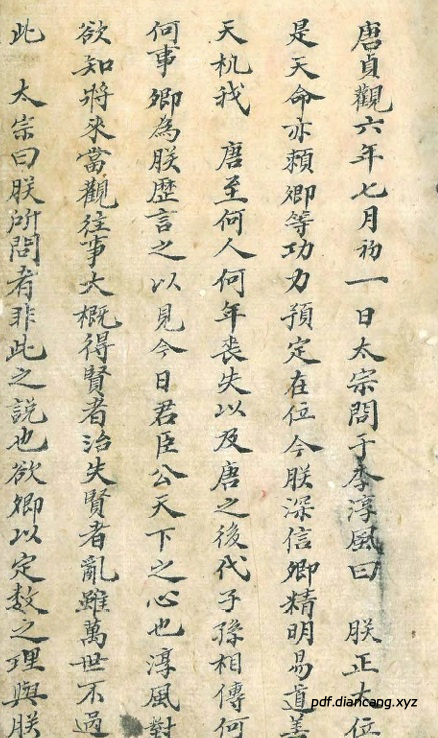 唐貞觀六年七月初一日太宗問于李淳風曰 朕正大位
是天命亦賴卿等功力預定在位今朕深信卿精明易道善
天机我 唐至何人何年丧失以及唐之後代子孫相傳何
何事卿為朕歷言之以見今日君臣公天下之心也淳風對
欲知將來當觀往事大概得賢者治失賢者亂雖萬世不過
此 太宗曰朕所問者非此之説也欲卿以定数之理與朕
pdf.diancang.xyz